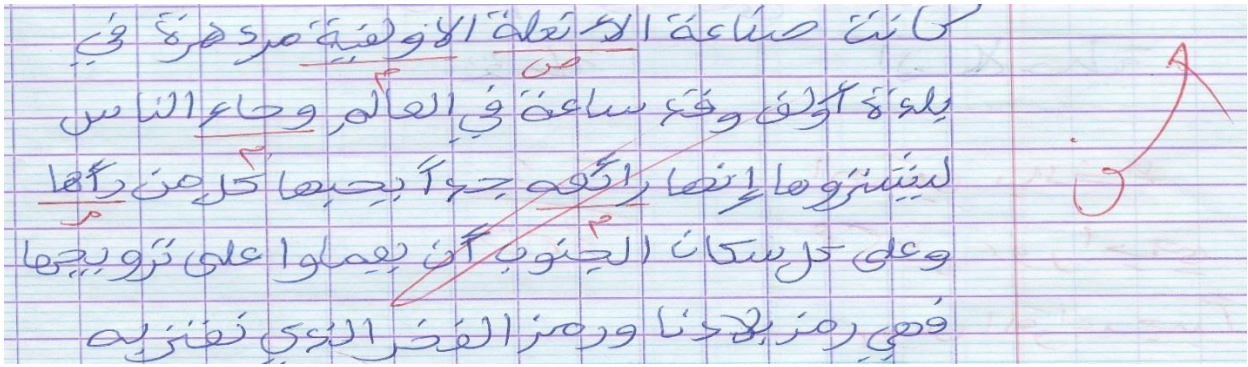 كانت صناعة الأنعلة الاولفية مزدهرة في
بلدة أولف وقد ساعة في العالم وجاء الناس
ليشتروها إنها رائعه جدآ يحبها كل من رأها
وعلى كل سكان الجنوب أن يعملوا على ترويجها
فهي رمز بلادنا ورمز الفخر الذي نفتز به